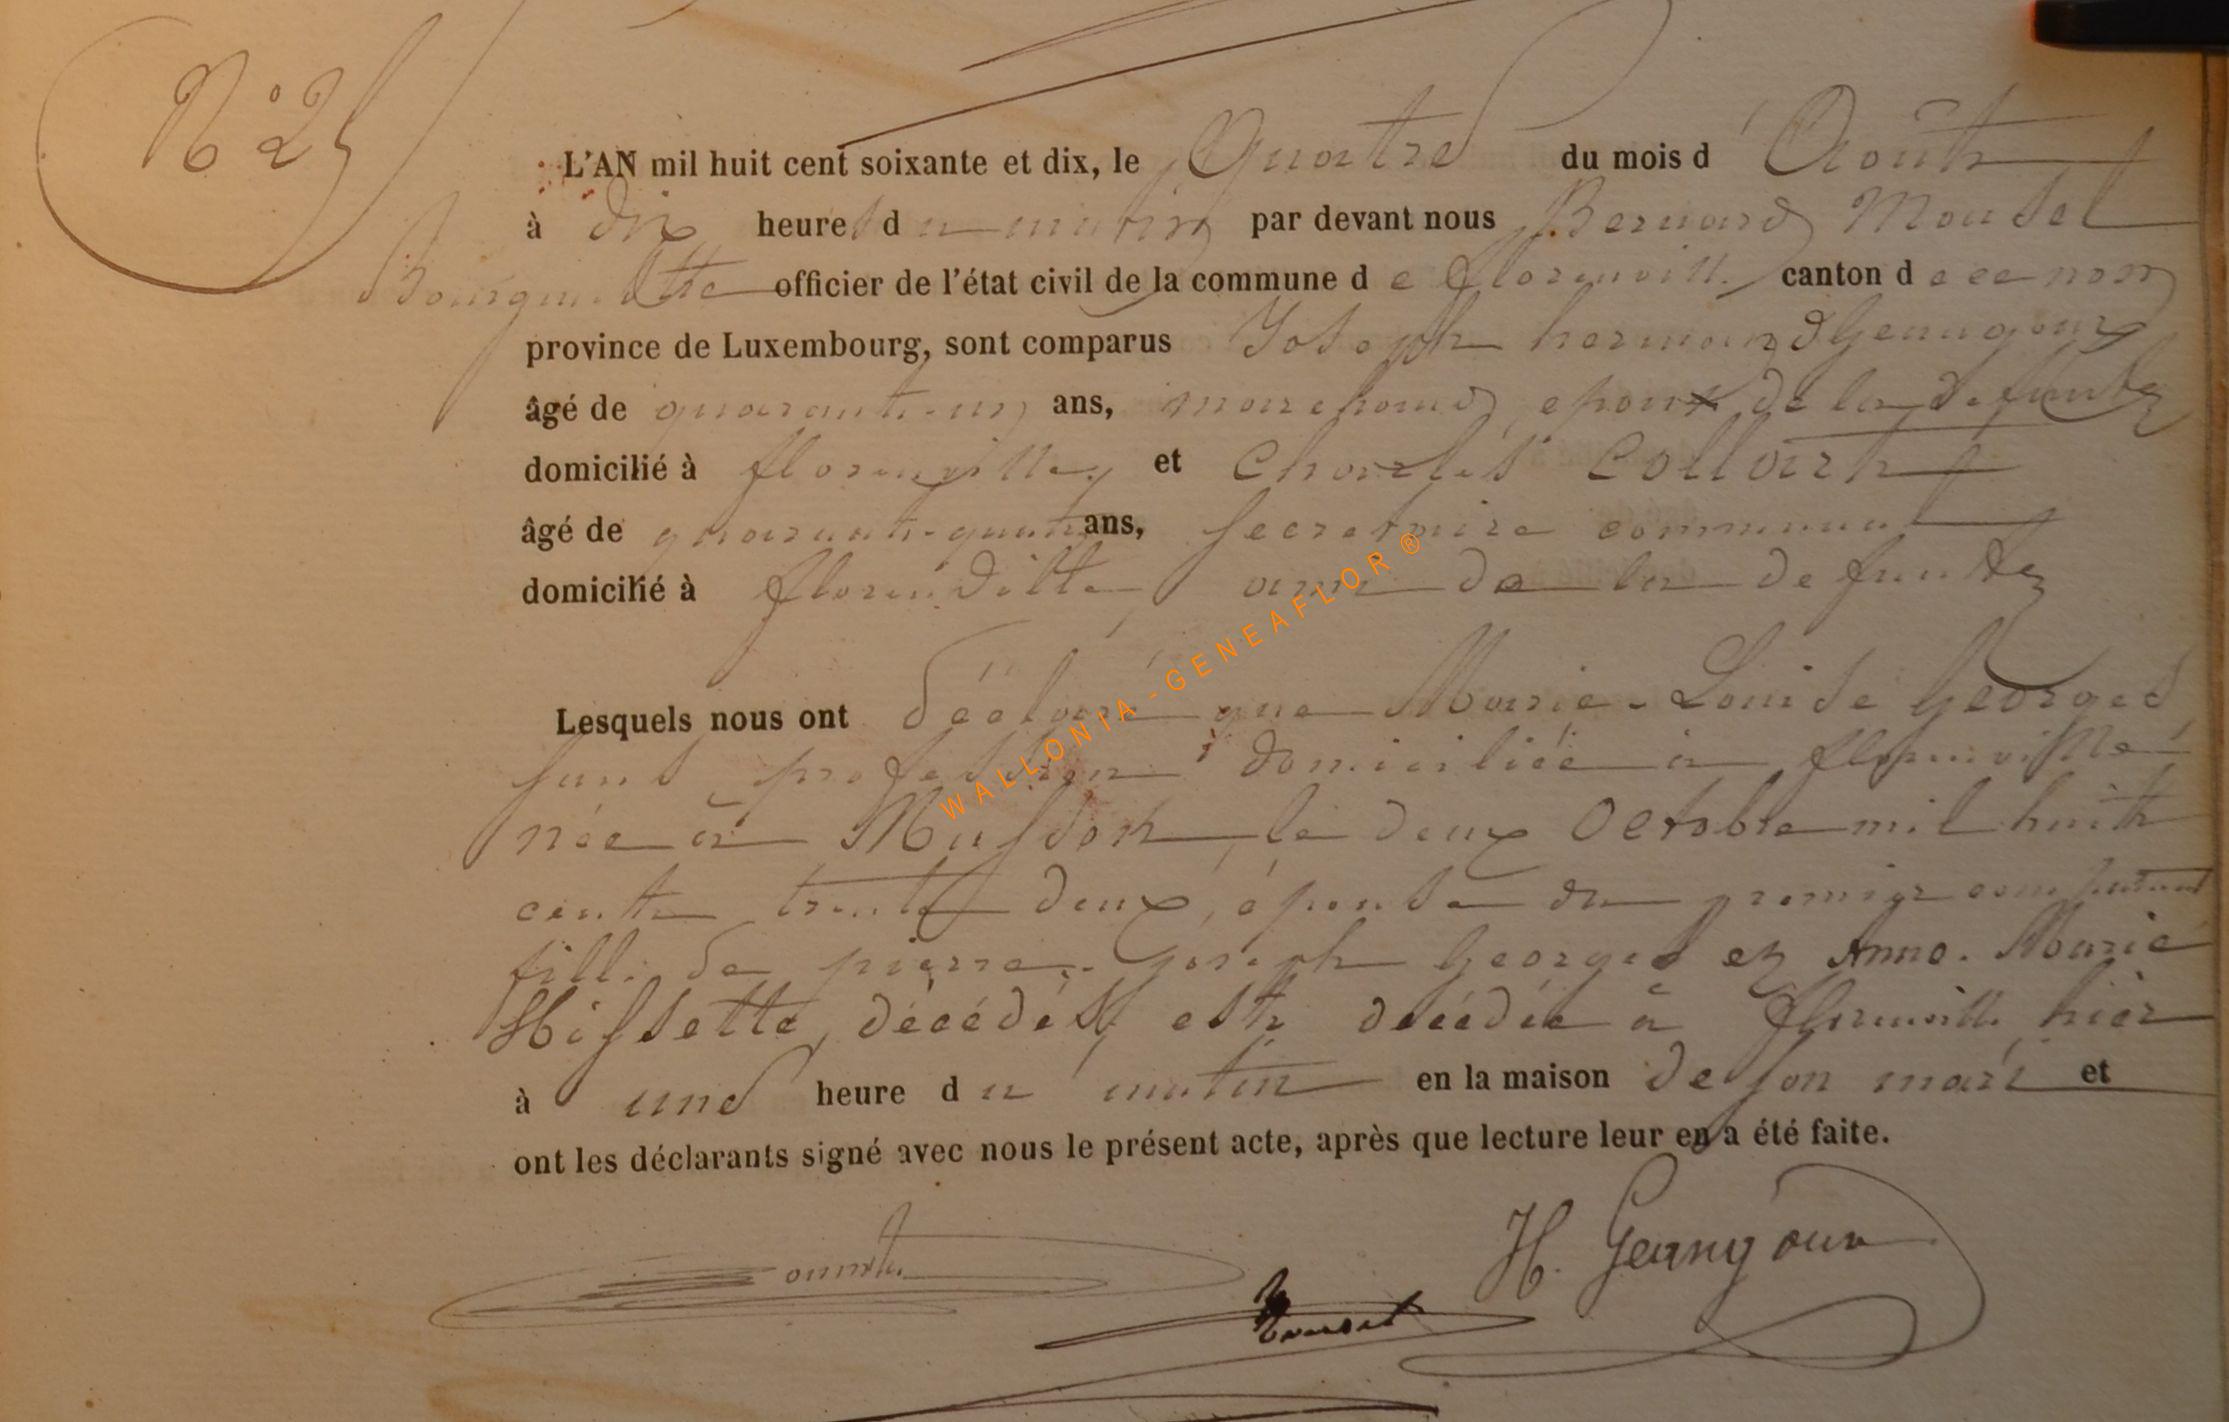 N° 25
L'AN mil huit cent soixante et dix, le Quatre du mois d'Août
à dix heures du matin par devant nous Bernard Mousel
Bourgmestre officier de l'état civil de la commune de florenville canton de ce nom
province de Luxembourg, sont comparus Joseph hermand Geangoux
âgé de quarante-un ans, marchand, epoux de la défunte
domicilié à florenville, et Charles Collart
âgé de quarante-quatre ans, secretaire communal
domicilié à florenville, ami de la defunte
Lesquels nous ont déclaré que Marie-Louise Georges
sans profession domiciliée à florenville
née à Musson, le deux Octobre mil huit
cent trente deux, épouse du premier comparant
fille de pierre-joseph Georges et Anne-Marie
Hissette, décédés, est décédée à florenville hier
à une heure du matin en la maison de son mari et
ont les déclarants signé avec nous le présent acte, après que lecture leur en a été faite.
H. Geangoux
WALLONIA-GENEAFLOR®